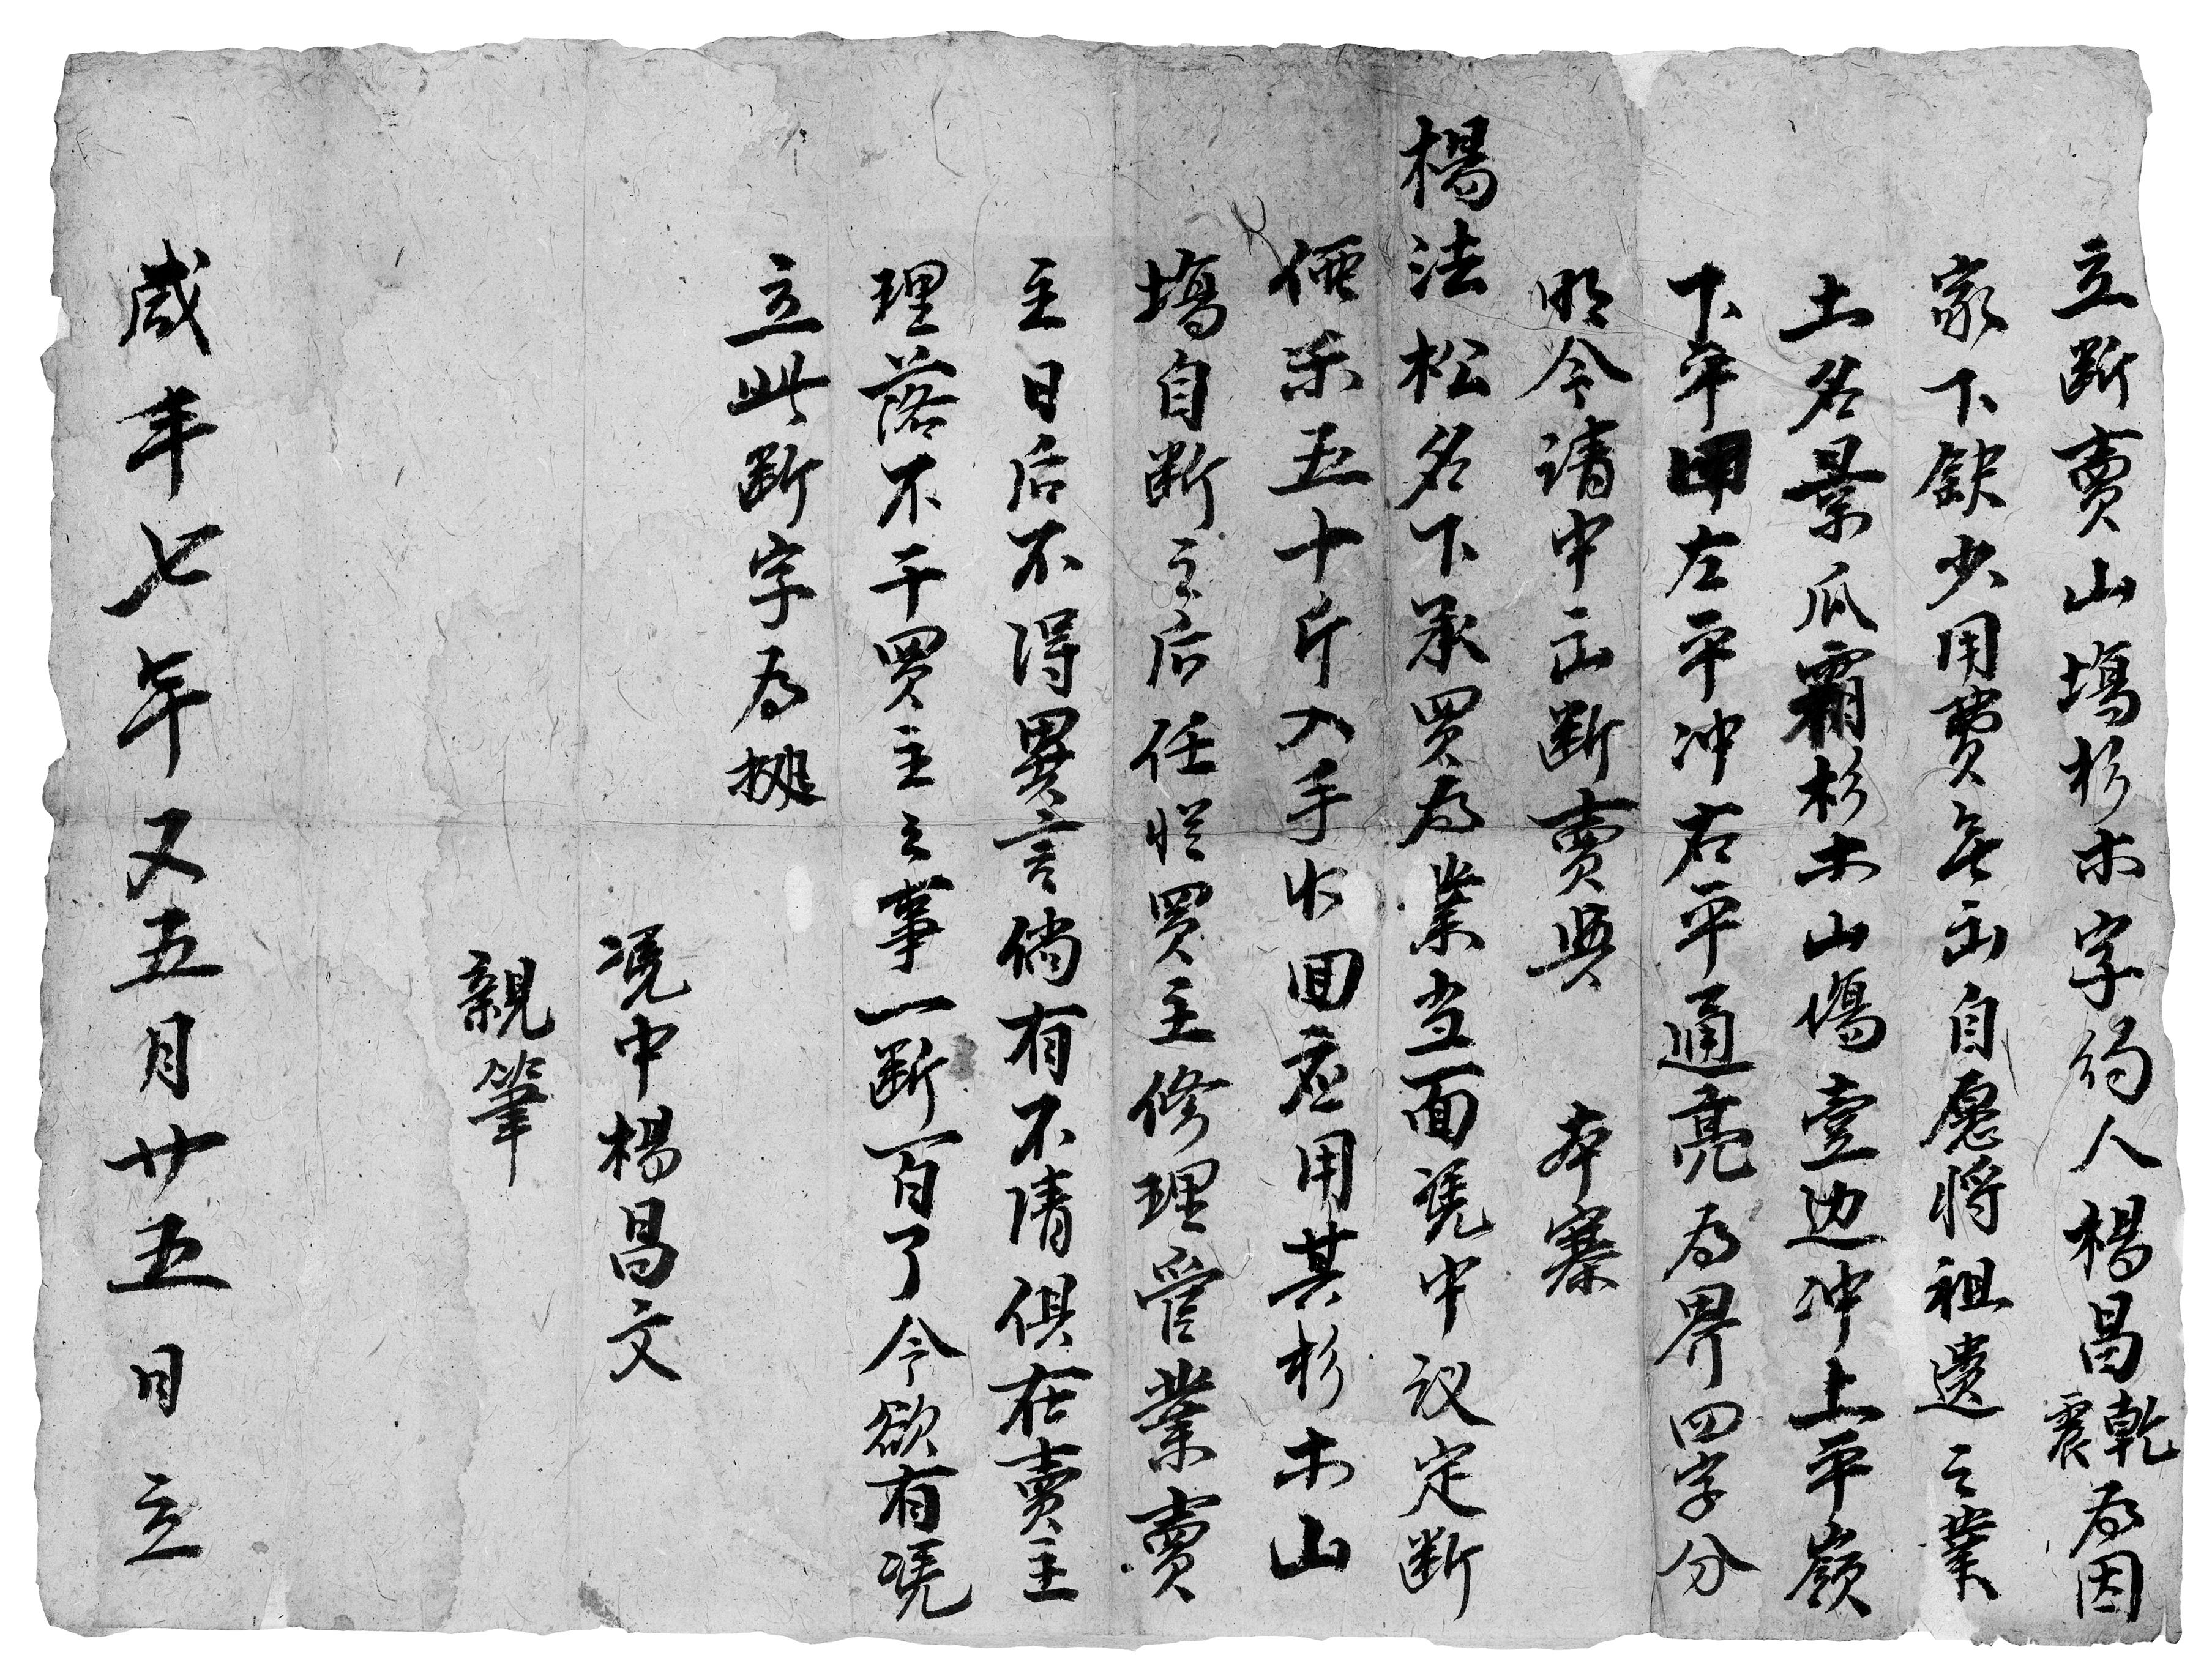 立断賣山塲杉木字约人楊昌乾震為因
家下欽少用費無出自愿將祖遺之業
土名景瓜霜杉木山塲壹边冲上平嶺
下平田左平冲右平通亮為界四字分
明今请中出断賣與 本寨
楊法松名下承買為業当面凭中议定断
価禾五十斤入手收回应用其杉木山
塲自断之后任凭買主修理管業賣
主日后不得異言倘有不清俱在賣主
理落不干買主之事一断百了今欲有凭
立此断字為據
凭中楊昌文
親筆
咸丰七年又五月廿五日立